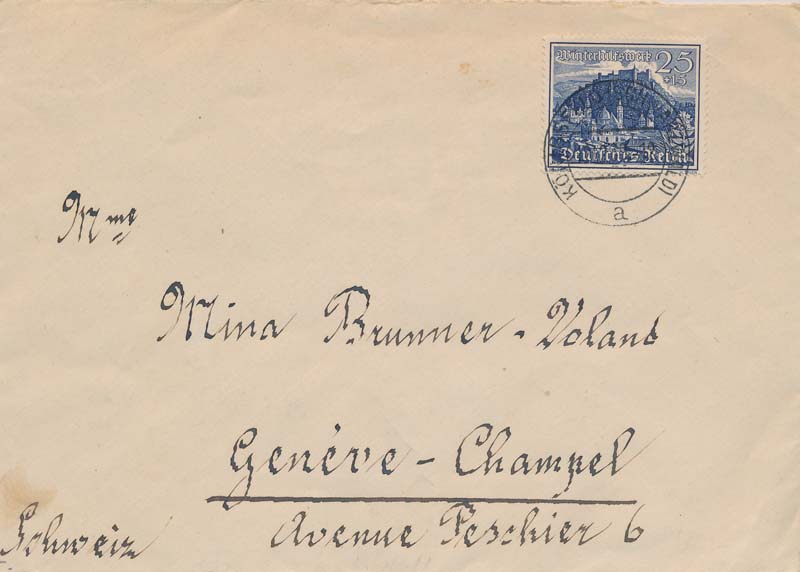 Winterhilfswerk 25
+15
Deutsches Reich
a
Mme
Mina Brunner-Voland
Genève-Champel
Avenue Peschier 6
Schweiz